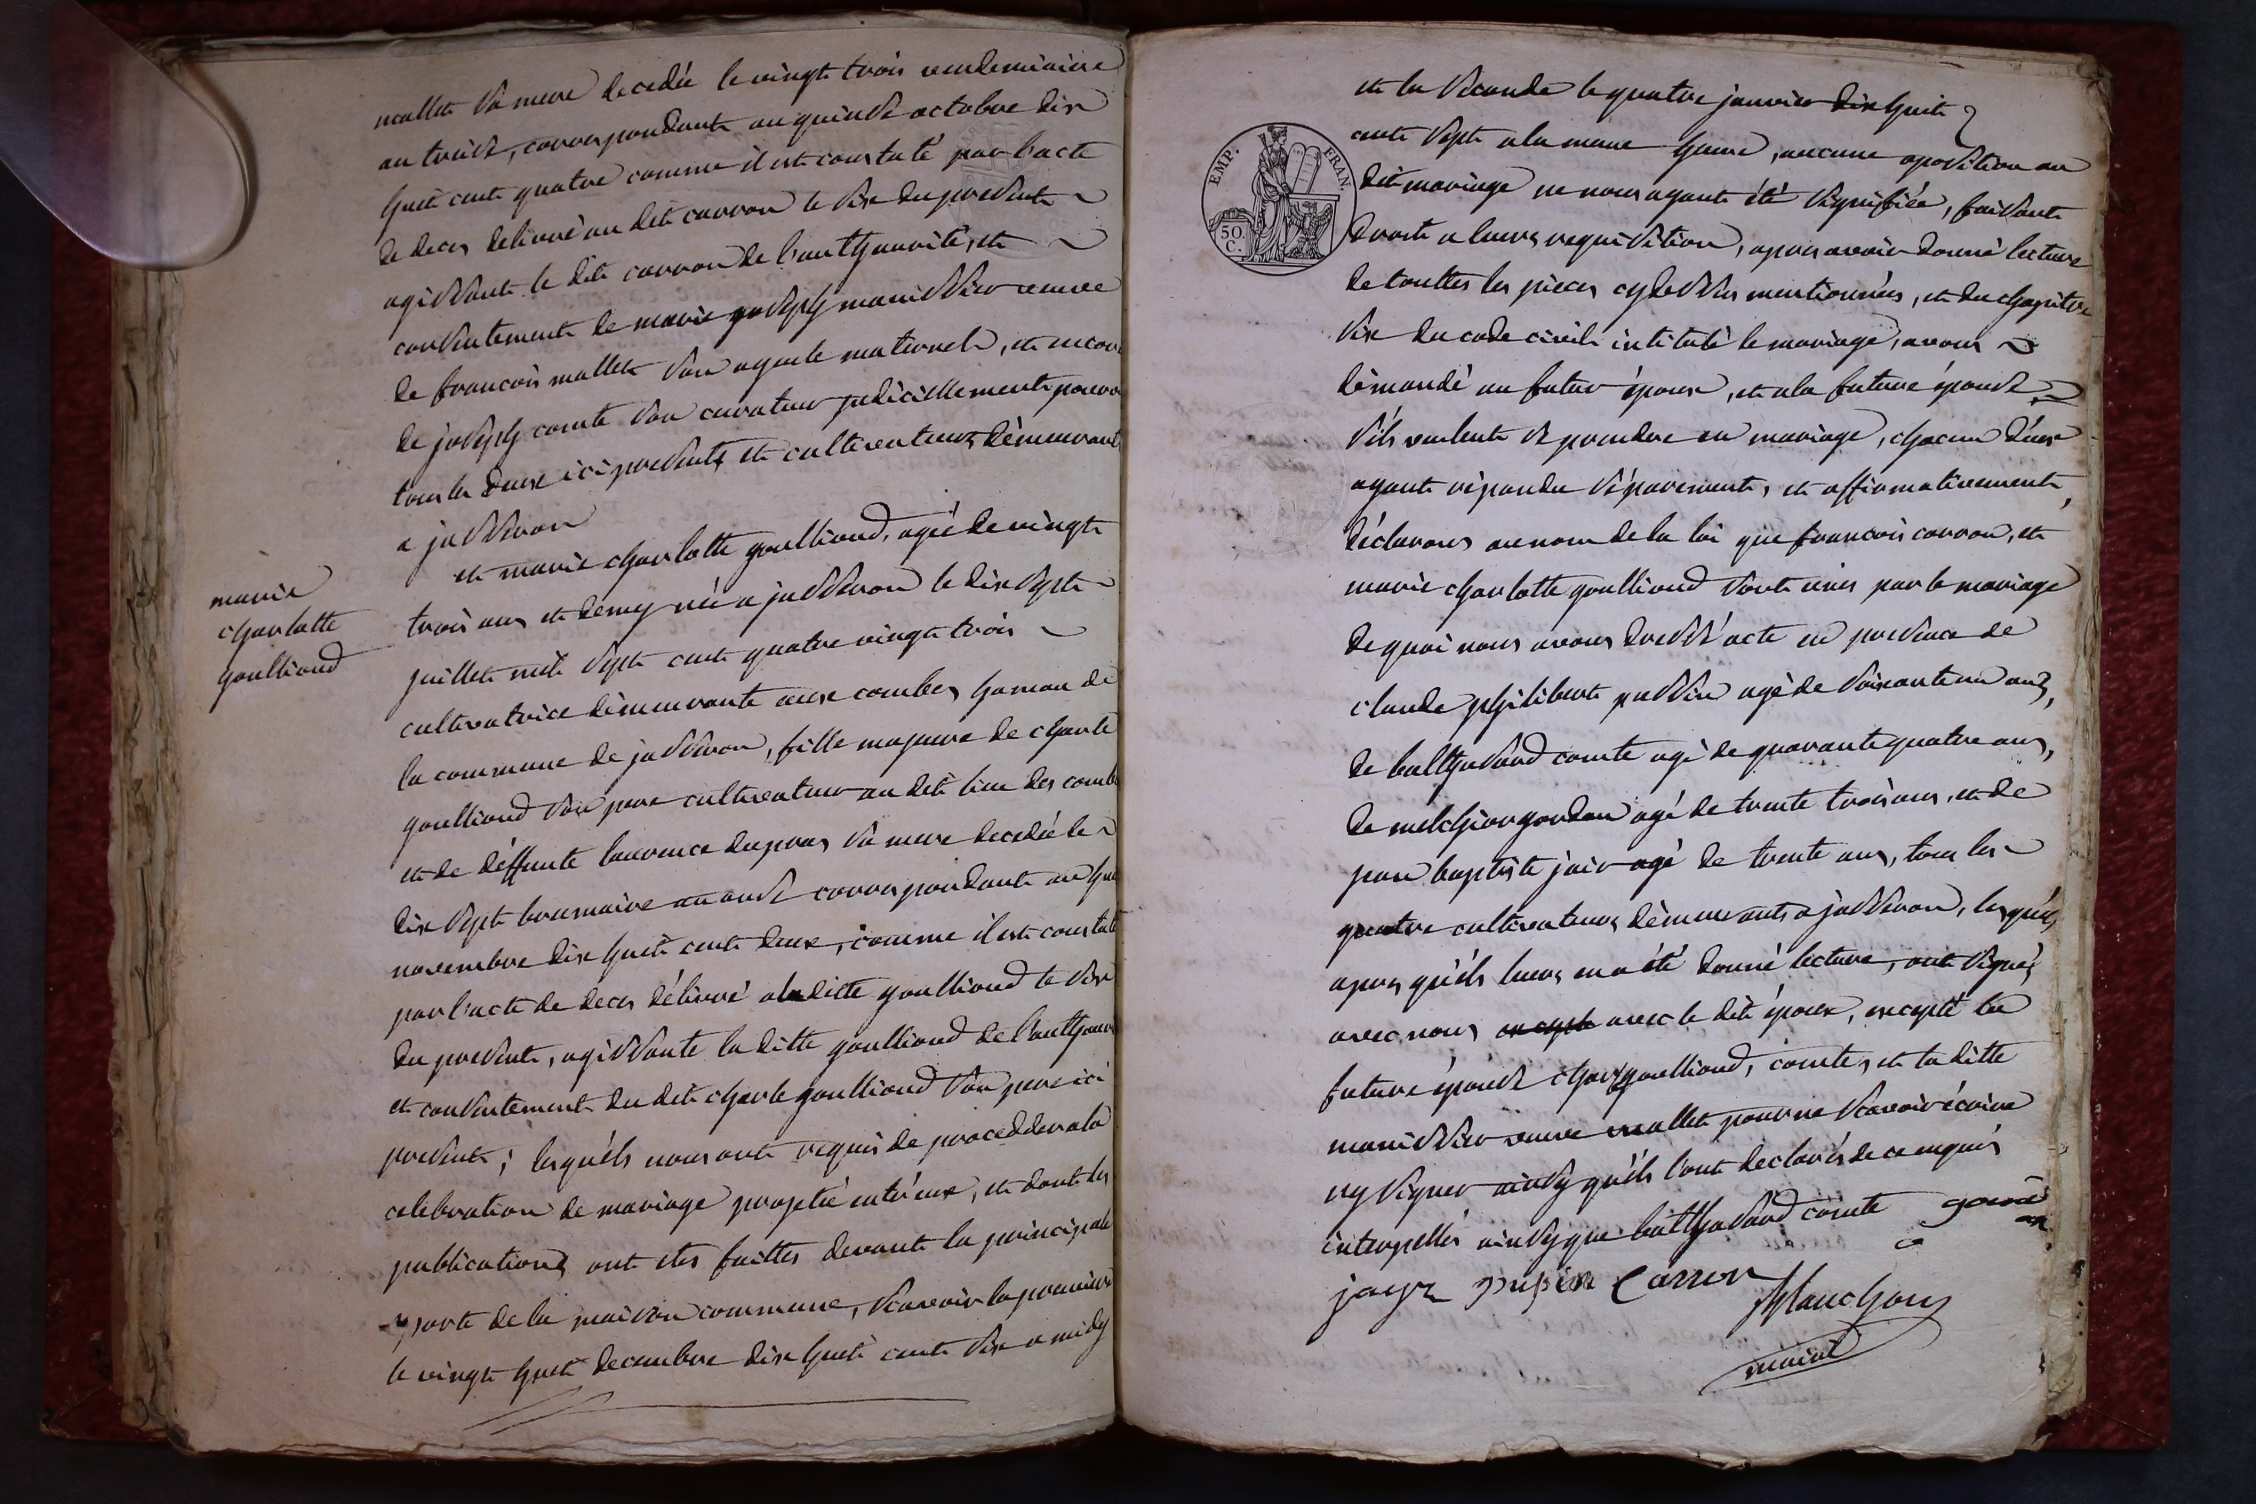 mallet sa mere decedée le vingt trois vendemiaire
an treize, correspondant au quinze octobre dix
huit cent quatre comme il est constaté par l'acte
de deces delivré au dit carron le six du present
agissant le dit carron de l'authauorité, et
consentement de marie joseph manissier veuve
de francois mallet son ayeule maternel, et encore
de joseph comte son curateur judiciellement pourvu
tous les deux ici presents et cultivateurs demeurant
a jasseron
et marie charlotte goullioud, agée de vingt
trois ans et demy née a jasseron le dix sept
juillet mil sept cent quatre vingt trois
cultivatrice demeurante aux combes hamau de
la commune de jasseron, fille majeure de charle
goullioud son pere cultivateur au dit lieu des combe
et de deffunte laurence dupras sa mere decedée le
dix sept brumaire an onze correspondant au huit
novembre dix huit cent deux, comme il est constaté
par l'acte de deces délivré a la ditte goullioud le six
du present, agissante la ditte goullioud de l'authau
et consentement du dit charle goullioud son pere ici
present; lesquéls nous ont requis de procedder a la
celebration de mariage projetté entr'eux, et dont les
publications ont etés faittes devant la principale
porte de la maison commune, scavoir la premiere
le vingt huit decembre dix huit cent six a midy
marie
charlotte
goullioud
et la seconde le quatre janvier dix huit
cent sept a la meme heure, aucune oposition au
dit mariage ne nous ayant été signifiée, faisant
droit a leurs requisition, apres avoir donné lecture
de touttes les pieces cy dessus mentionnées, et du chapitre
six du code civil intitulé le mariage, avons
démandé au futur époux, et a la future épouse
s'ils veulent se prendre en mariage, chacun d'eux
ayant répondu séparement, et affirmativement,
déclarons au nom de la loi que francois carron, et
marie charlotte goullioud sont unis par le mariage
de quoi nous avons dressé acte en presence de
claude philibert pussin agé de soixante un ans,
de balthasard comte agé de quarante quatre ans,
de melchior gordan agé de trente trois ans, et de
jean baptiste joir agé de trente ans, tous les
quatre cultivateurs demeurants a jasseron, lesquéls
apres qu'ils leurs en a été donné lecture, ont signés
avec nous excepte avec le dit époux, excepté la
future épouse charle goullioud, comte, et la ditte
manissier veuve mallet pour ne scavoir écrire
ny signer ainsy qu'ils l'ont declarés de ce enquis
interpellés ainsy que balthasard comte
joyr pupin Carron
Planchon
maire
EMP. FRAN.
50 C.